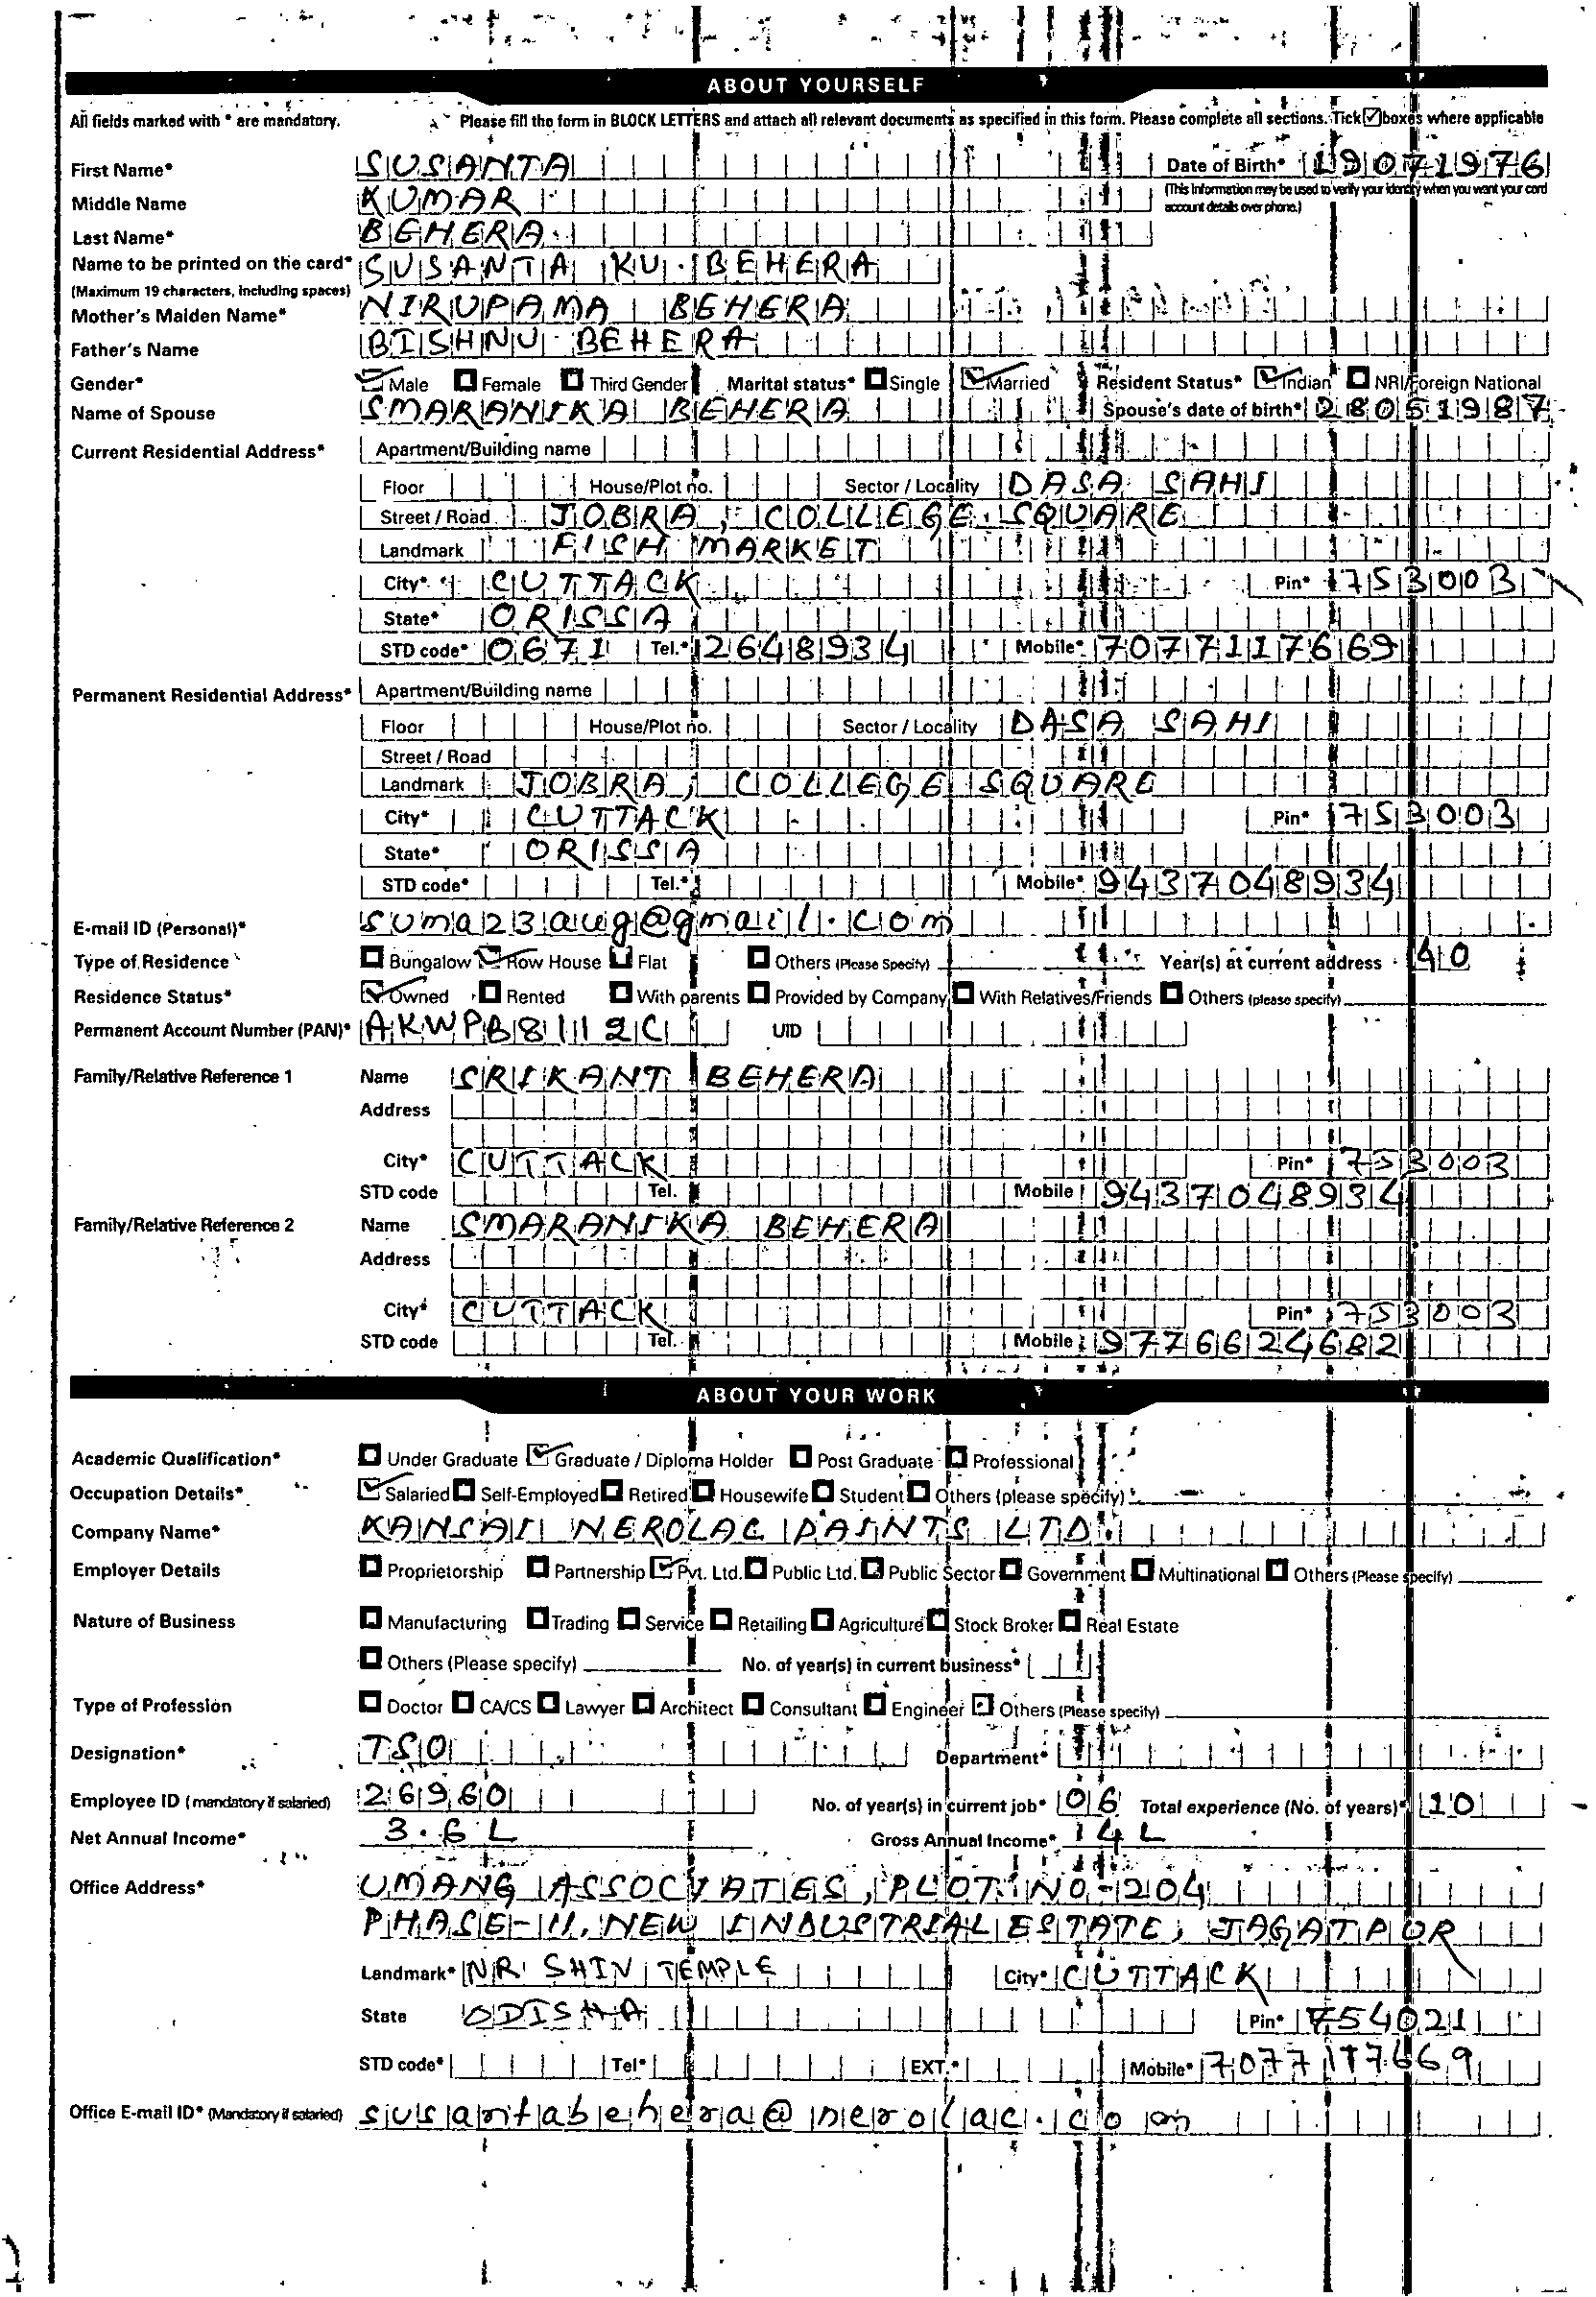 ABOUT YOURSELF
All fields marked with * are mandatory. Please fill the form in BLOCK LETTERS and attach all relevant documents as specified in this form. Please complete all sections. Tick ☑ boxes where applicable
First Name* SUSANTA Date of Birth* 19071976
(This Information may be used to verify your identity when you want your card account details over phone.)
Middle Name KUMAR
Last Name* BEHERA
Name to be printed on the card* SUSANTA KU. BEHERA
(Maximum 19 characters, including spaces)
Mother's Maiden Name* NIRUPAMA BEHERA
Father's Name BISHNU BEHERA
Gender* Male Female Third Gender Marital status* Single Married Resident Status* Indian NRI/Foreign National
Name of Spouse SMARANIKA BEHERA Spouse's date of birth* 28051987
Current Residential Address* Apartment/Building name
Floor House/Plot no. Sector / Locality DASA SAHI
Street / Road JOBRA, COLLEGE SQUARE
Landmark FISH MARKET
City* CUTTACK Pin* 753003
State* ORISSA
STD code* 0671 Tel.* 2648934 Mobile* 7077117669
Permanent Residential Address* Apartment/Building name
Floor House/Plot no. Sector / Locality DASA SAHI
Street / Road
Landmark JOBRA, COLLEGE SQUARE
City* CUTTACK Pin* 753003
State* ORISSA
STD code* Tel.* Mobile* 9437048934
E-mail ID (Personal)* suma23aug@gmail.com
Type of Residence Bungalow Row House Flat Others (Please Specify) Year(s) at current address 40
Residence Status* Owned Rented With parents Provided by Company With Relatives/Friends Others (please specify)
Permanent Account Number (PAN)* AKWPB8112C UID
Family/Relative Reference 1 Name SRIKANT BEHERA
Address
City* CUTTACK Pin* 753003
STD code Tel. Mobile 9437048934
Family/Relative Reference 2 Name SMARANIKA BEHERA
Address
City* CUTTACK Pin* 753003
STD code Tel. Mobile 9776624682
ABOUT YOUR WORK
Academic Qualification* Under Graduate Graduate / Diploma Holder Post Graduate Professional
Occupation Details* Salaried Self-Employed Retired Housewife Student Others (please specify)
Company Name* KANSAI NEROLAC PAINTS LTD.
Employer Details Proprietorship Partnership Pvt. Ltd. Public Ltd. Public Sector Government Multinational Others (Please specify)
Nature of Business Manufacturing Trading Service Retailing Agriculture Stock Broker Real Estate
Others (Please specify) No. of year(s) in current business*
Type of Profession Doctor CA/CS Lawyer Architect Consultant Engineer Others (Please specify)
Designation* TSO Department*
Employee ID (mandatory if salaried) 26960 No. of year(s) in current job* 06 Total experience (No. of years)* 10
Net Annual Income* 3.6 L Gross Annual Income* 4 L
Office Address* UMANG ASSOCIATES, PLOT NO-204
PHASE-II, NEW INDUSTRIAL ESTATE, JAGATPUR
Landmark* NR SHIV TEMPLE City* CUTTACK
State ODISHA Pin* 754021
STD code* Tel* EXT.* Mobile* 7077117669
Office E-mail ID* (Mandatory if salaried) susantabehera@nerolac.com